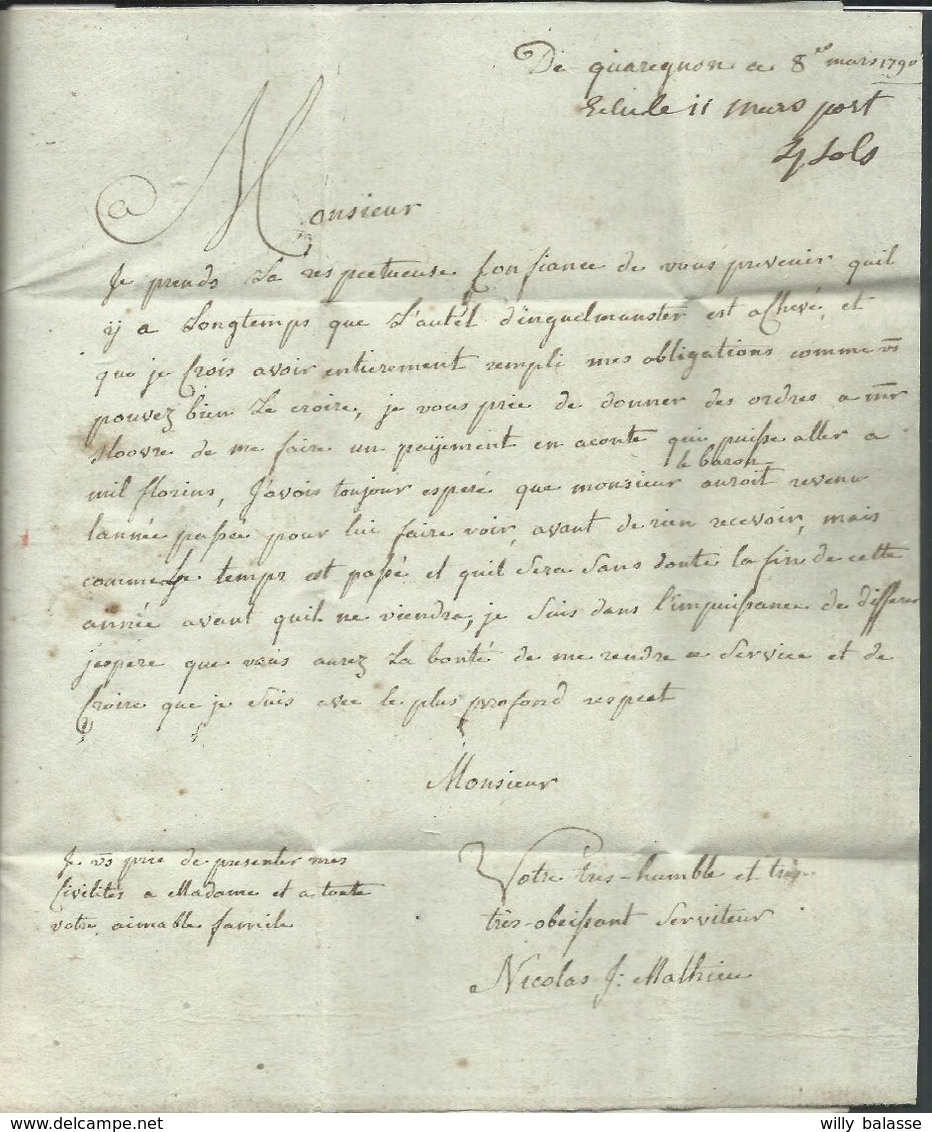 De quaregnon ce 8re mars 1790
Echu le 11 mars port
4 sols
a Monsieur
Je prends La respectueuse Confiance de vous prevenir quil
ÿ a Longtemps que L'autel d'inguelmunster est acheve, et
que je Crois avoir entierement rempli mes obligations comme vs
pouvez bien Le croire, je vous prie de donner des ordres a mr
Sloovre de me faire un paÿement en aconte qui puisse aller a
mil florins, J'avois toujour esperé que monsieur le baron auroit revenu
lannée passée pour lui faire voir, avant de rien recevoir, mais
comme Le temps est passé et quil sera sans doute la fin de cette
année avant quil ne viendra, je suis dans l'impuissance de differer
jespere que vous aurez La bonté de me rendre ce service et de
Croire que je suis avec le plus profond respect
Monsieur
Je vs prie de presenter mes
Civilités a Madame et a toute
votre aimable famile
Votre très-humble et très-
très-obeissant serviteur
Nicolas J: Mathieu
willy balasse